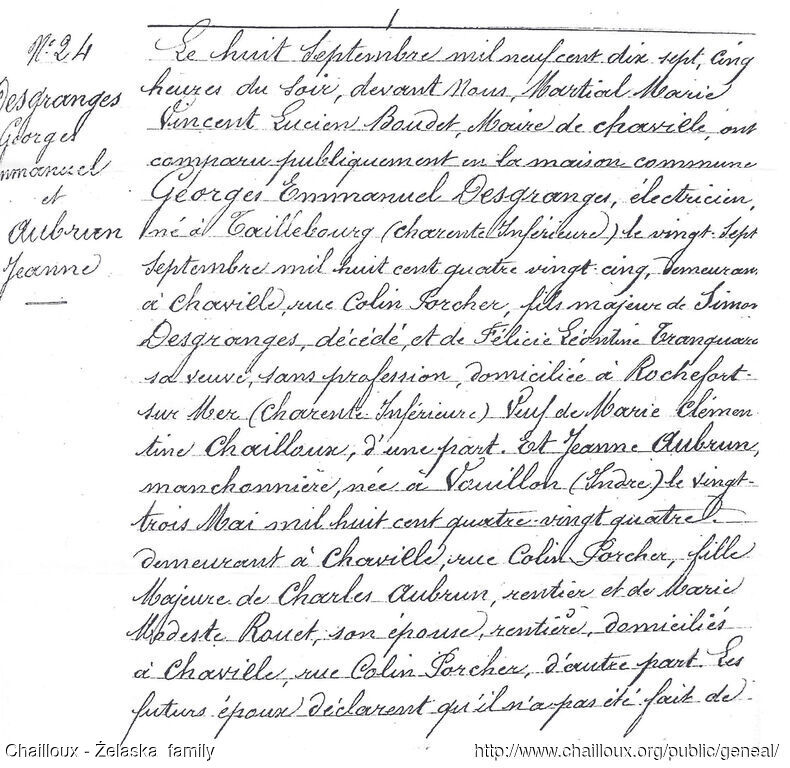 N° 24
Desgranges
Georges
mmanuel
et
Aubrun
Jeanne
Le huit Septembre mil neuf cent dix sept, cinq
heures du soir, devant Nous, Martial Marie
Vincent Lucien Boudet, Maire de Chaville, ont
comparu publiquement en la maison commune
Georges Emmanuel Desgranges, électricien,
né à Taillebourg (Charente Inférieure) le vingt-sept
Septembre mil huit cent quatre vingt-cinq, demeuran
à Chaville, rue Colin Porcher, fils majeur de Simon
Desgranges, décédé, et de Félicie Léontine Tranquard
sa veuve, sans profession, domiciliée à Rochefort-
sur Mer (Charente-Inférieure) Veuf de Marie Clémen
tine Chailloux, d'une part. Et Jeanne Aubrun,
manchonnière, née à Vouillon (Indre) le vingt-
trois Mai mil huit cent quatre-vingt quatre
demeurant à Chaville, rue Colin Porcher, fille
Majeure de Charles Aubrun, rentier et de Marie
Modeste Rouet, son épouse, rentière, domiciliés
à Chaville, rue Colin Porcher, d'autre part. Les
futurs époux déclarent qu'il n'a pas été fait de
Chailloux - Żelaska family
http://www.chailloux.org/public/geneal/